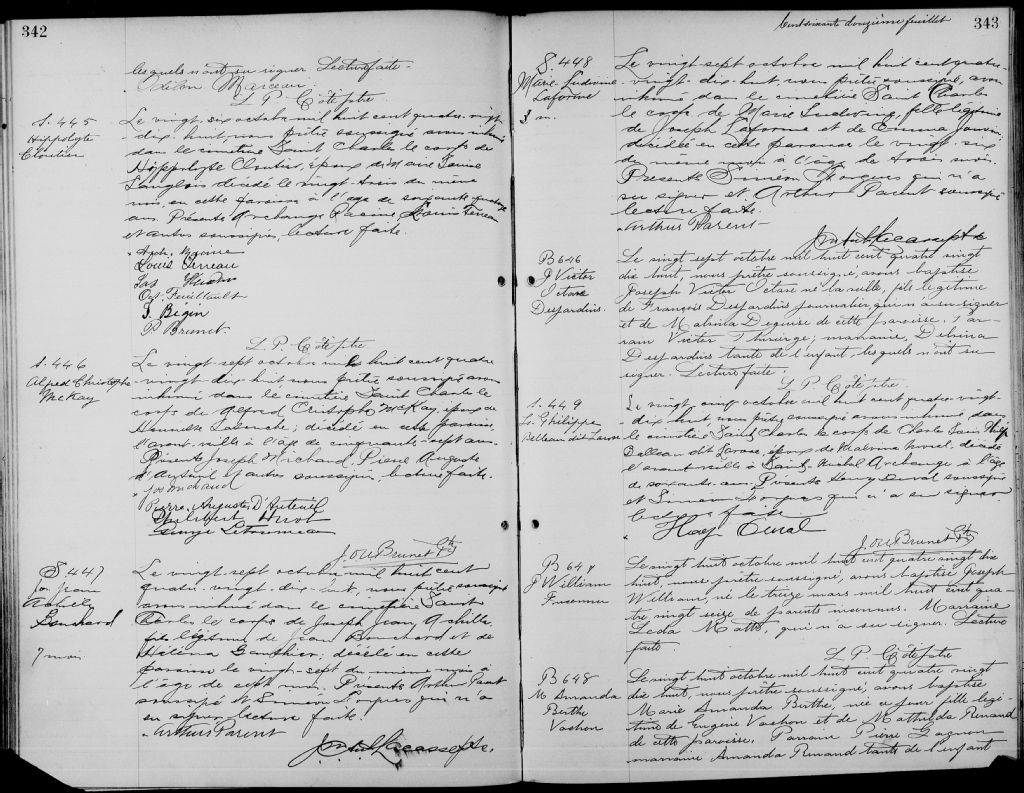 342
lesquels n'ont su signer. Lecture faite.
Odilon Marceau
L. P. Côté ptre
S. 445
Hippolyte
Cloutier
Le vingt-six octobre mil huit cent quatre-vingt-
dix-huit, nous prêtre soussigné avons inhumé
dans le cimetière Saint Charles le corps de
Hippolyte Cloutier, époux de Marie Louise
Langlois décédé le vingt-trois du même
mois, en cette paroisse à l'âge de soixante quatorze
ans. Présents Archange Racine, Louis Ferneau
et autres soussignés, lecture faite.
Arch. Racine
Louis
Jos
Oct. Feuilteault
J. Begin
P. Brunet
L. P. Côté ptre
S. 446
Alfred Christophe
McKay
Le vingt-sept octobre mil huit cent quatre-
vingt dix-huit nous prêtre soussigné avons
inhumé dans le cimetière Saint Charles le
corps de Alfred Cristophe McKay, époux de
décédé en cette paroisse,
l'avant-veille à l'âge de cinquante-sept ans.
Présents Joseph Michaud, Pierre Auguste
d'Auteuil et autres soussignés, lecture faite.
Jos Michaud
Pierre Auguste D'Auteuil
Philibert Huot
George Letourneau
J. O. U. Brunet Ptr
S 447
Jos. Jean
Achille
Bouchard
7 mois
Le vingt-sept octobre mil huit cent
quatre-vingt-dix-huit, nous prêtre soussigné
avons inhumé dans le cimetière Saint
Charles le corps de Joseph Jean Achille
fils légitime de Jean Bouchard et de
Héléna Gauthier, décédé en cette
paroisse le vingt-sept du même mois à
l'âge de sept mois. Présents Arthur Parent
soussigné et Siméon Forgues qui n'a
su signer, lecture faite.
Arthur Parent
343
Cent soixante douzième feuillet
S. 448
Marie Ludivine
Laforme
3 m.
Le vingt-sept octobre mil huit cent quatre-
vingt-dix-huit, nous prêtre soussigné, avons
inhumé dans le cimetière Saint Charles
le corps de Marie Ludivine, fille légitime
de Joseph Laforme et de Emma
décédée en cette paroisse le vingt-six
du même mois à l'âge de trois mois.
Présents Siméon Forgues qui n'a
su signer et Arthur Parent soussigné
lecture faite.
Arthur Parent
B 646
J Victor
Octave
Desjardins.
Le vingt sept octobre mil huit cent quatre vingt
dix huit, nous prêtre soussigné, avons baptisé
Joseph Victor Octave né la veille, fils légitime
de François Desjardins journalier, qui n'a su signer
et de Malvina Deguise de cette paroisse. Par-
rain Victor Thivierge; marraine, Delvina
Desjardins tante de l'enfant, lesquels n'ont su
signer. Lecture faite.
L. P. Côté ptre.
S. 449
Philippe
Belleau dit Larose
Le vingt-cinq octobre mil huit cent quatre-vingt-
dix-huit, nous prêtre soussigné avons inhumé dans
le cimetière Saint Charles le corps de Charles
Belleau dit Larose, époux de Malvina décédé
l'avant-veille à Saint Michel Archange à l'âge
de soixante ans. Présents Henry Duval soussigné
et Siméon Forgues qui n'a su signer
lecture faite
Henry Duval
J. O. U. Brunet Ptr
B 647
J William
Le vingt huit octobre mil huit cent quatre vingt dix
huit, nous prêtre soussigné, avons baptisé Joseph
William, né le treize mars mil huit cent qua-
tre vingt seize de parents inconnus. Marraine
Léda Motte, qui n'a su signer. Lecture
faite.
L. P. Côté ptre
B 648
M Amanda
Berthe
Vachon
Le vingt huit octobre mil huit cent quatre vingt
dix huit, nous prêtre soussigné, avons baptisé
Marie Amanda Berthe, née ce jour fille légi-
time de Eugène Vachon et de Mathilda Renaud
de cette paroisse. Parrain Pierre Gagnon
marraine Amanda Renaud tante de l'enfant